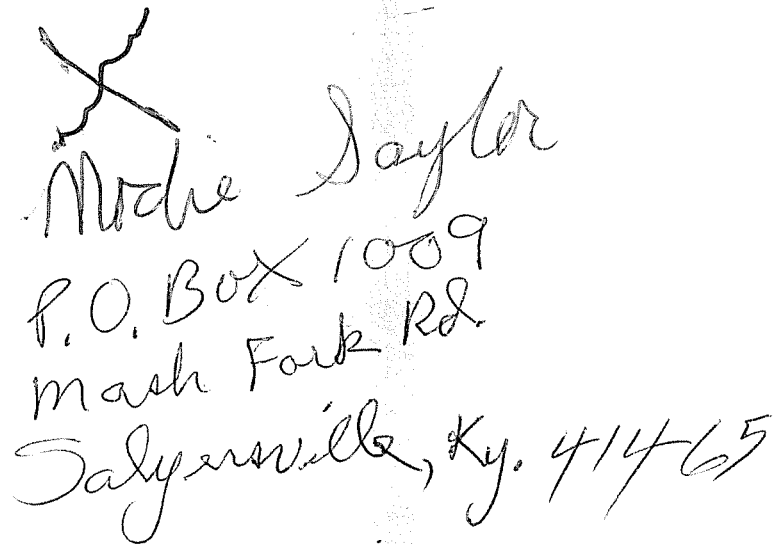 X
Modie Saylor
P.O. Box 1009
Mash Fork Rd.
Salyersville, Ky. 41465